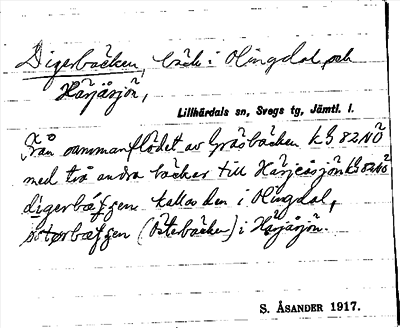 Digerbäcken, bäck i Olingdal och
Härjåsjön,
Lillhärdals sn, Svegs tg, Jämtl. l.
Från sammanflödet av Gräsbäcken k G 82 NÖ
med två andra bäckar till Härjeåsjön k G 82 NÖ
digerbæ kallas den i Olingdal,
(Österbäcken) i Härjåsjön.
S. ÅSANDER 1917.